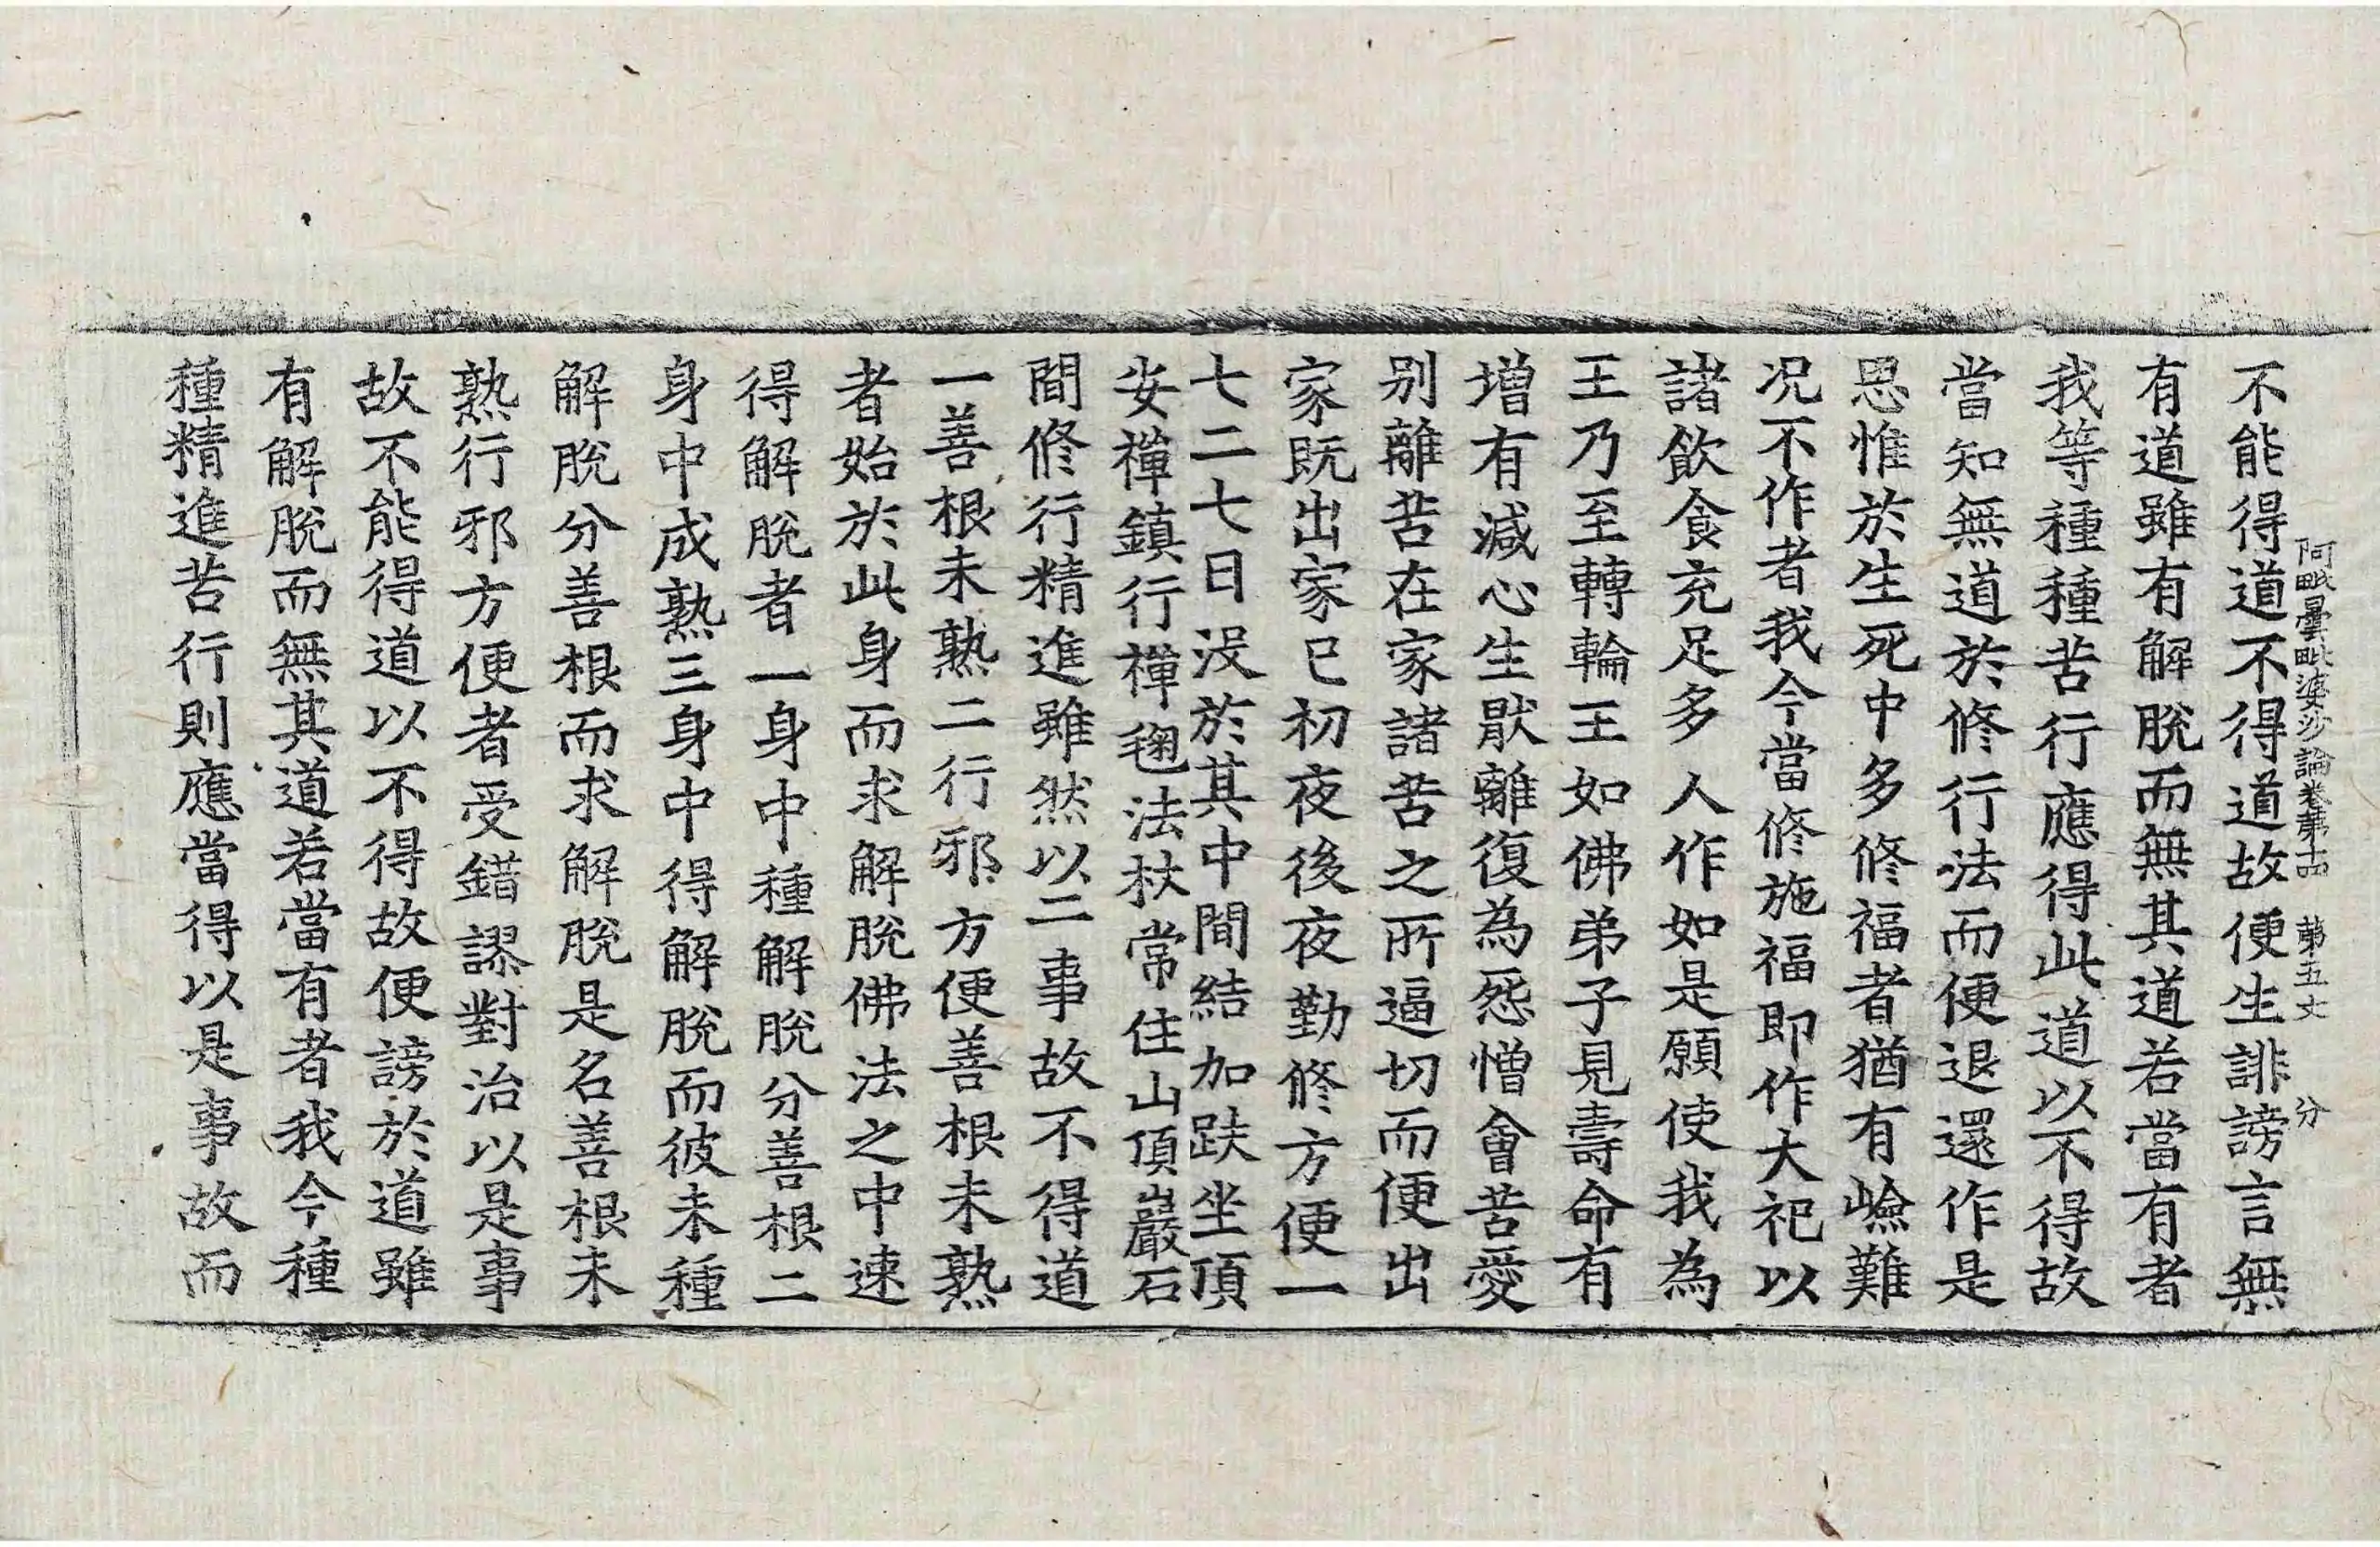 阿毗曇毗婆沙論卷第十四 第五丈 分
不能得道不得道故便生誹謗言無
有道雖有解脫而無其道若當有者
我等種種苦行應得此道以不得故
當知無道於修行法而便退還作是
思惟於生死中多修福者猶有嶮難
況不作者我今當修施福即作大祀以
諸飲食充足多人作如是願使我為
王乃至轉輪王如佛弟子見壽命有
增有減心生猒離復為怨憎會苦愛
別離苦在家諸苦之所逼切而便出
家既出家已初夜後夜勤修方便一
七二七日沒於其中間結加趺坐頂
安禪鎮行禪毱法杖常住山頂巖石
間修行精進雖然以二事故不得道
一善根未熟二行邪方便善根未熟
者始於此身而求解脫佛法之中速
得解脫者一身中種解脫分善根二
身中成熟三身中得解脫而彼未種
解脫分善根而求解脫是名善根未
熟行邪方便者受錯謬對治以是事
故不能得道以不得故便謗於道雖
有解脫而無其道若當有者我今種
種精進苦行則應當得以是事故而